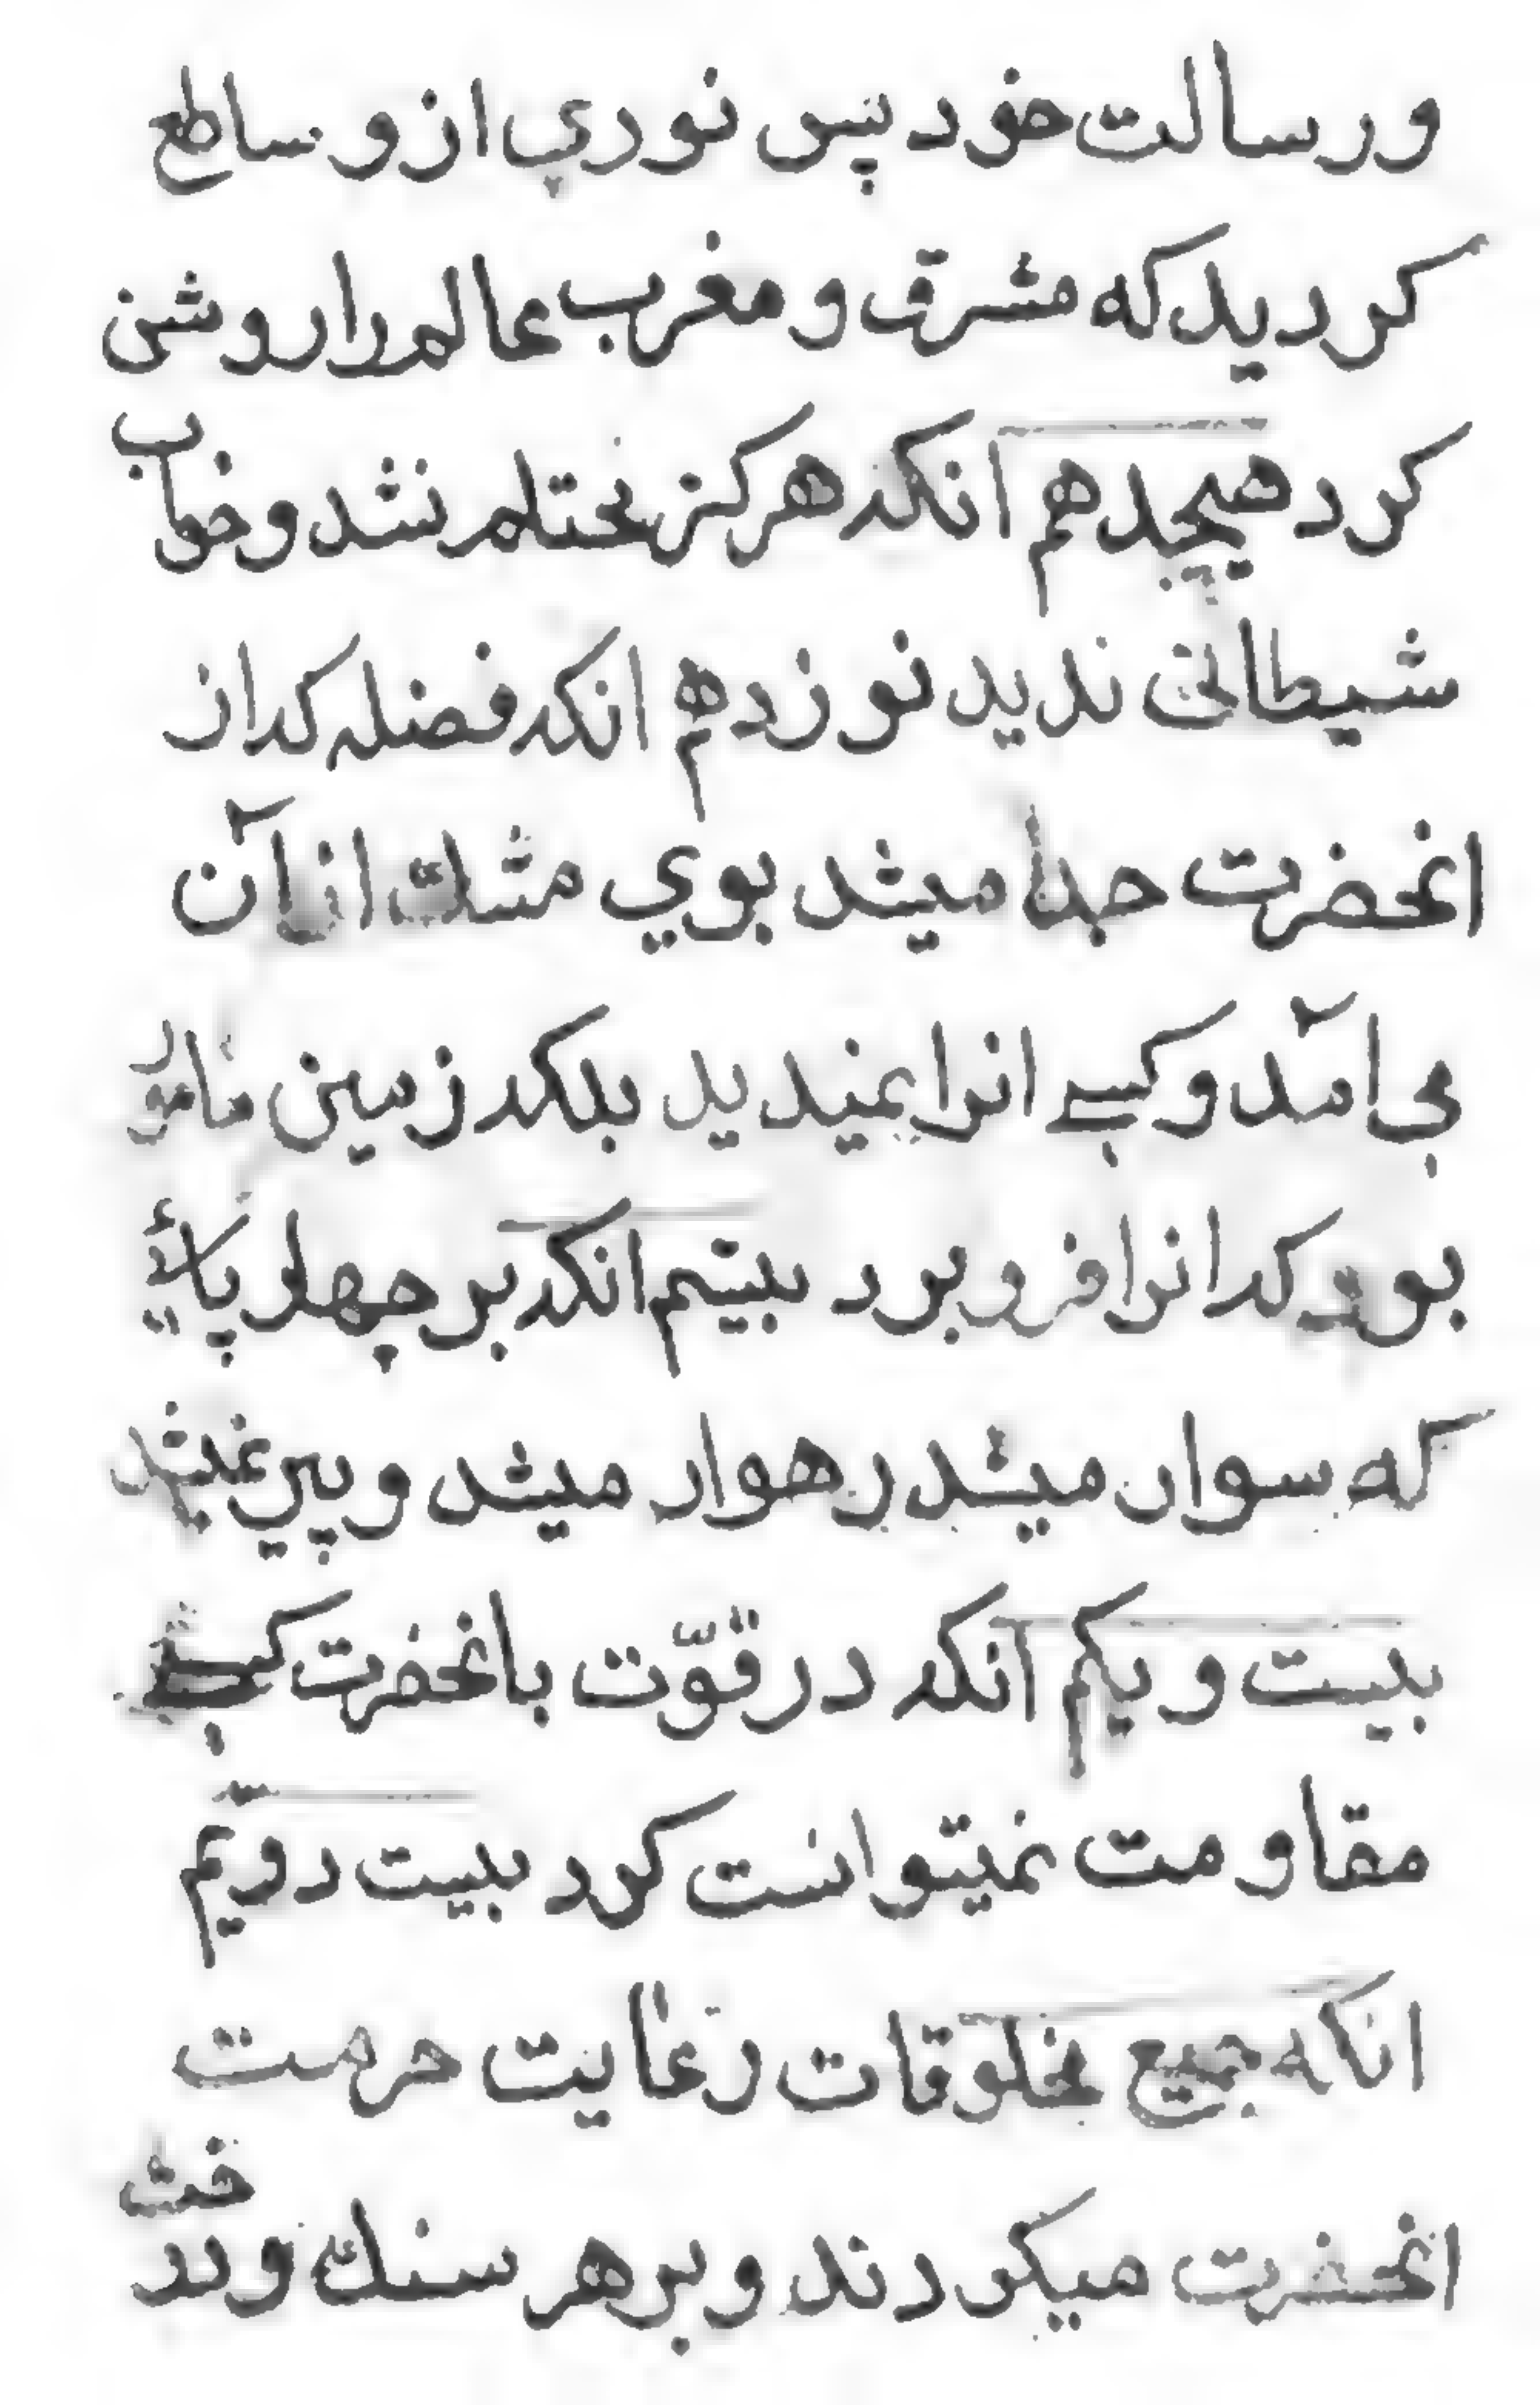 ورسالت خود پس نوري ازو ساطع
کردید که مشرق و مغرب عالم را روشن
کرد هیجدهم انکه هرکز محتلم نشد و خواب
شیطانی ندید نوزدهم انکه فضله که از
انحضرت جدا میشد بوي مشك از آن
می آمد و کسے انرا نمیدید بلکه زمین مامور
بود که انرا فرو برد بیستم انکه بر چهار پائے
که سوار میشد رهوار میشد و پیر نمیشد
بیست و یکم آنکه در قوّت بانحضرت کسے
مقاومت نمیتوانست کرد بیست دویم
انکه جمیع مخلوقات رعایت حرمت
انحضرت میکردند و بر هر سنك و درخت